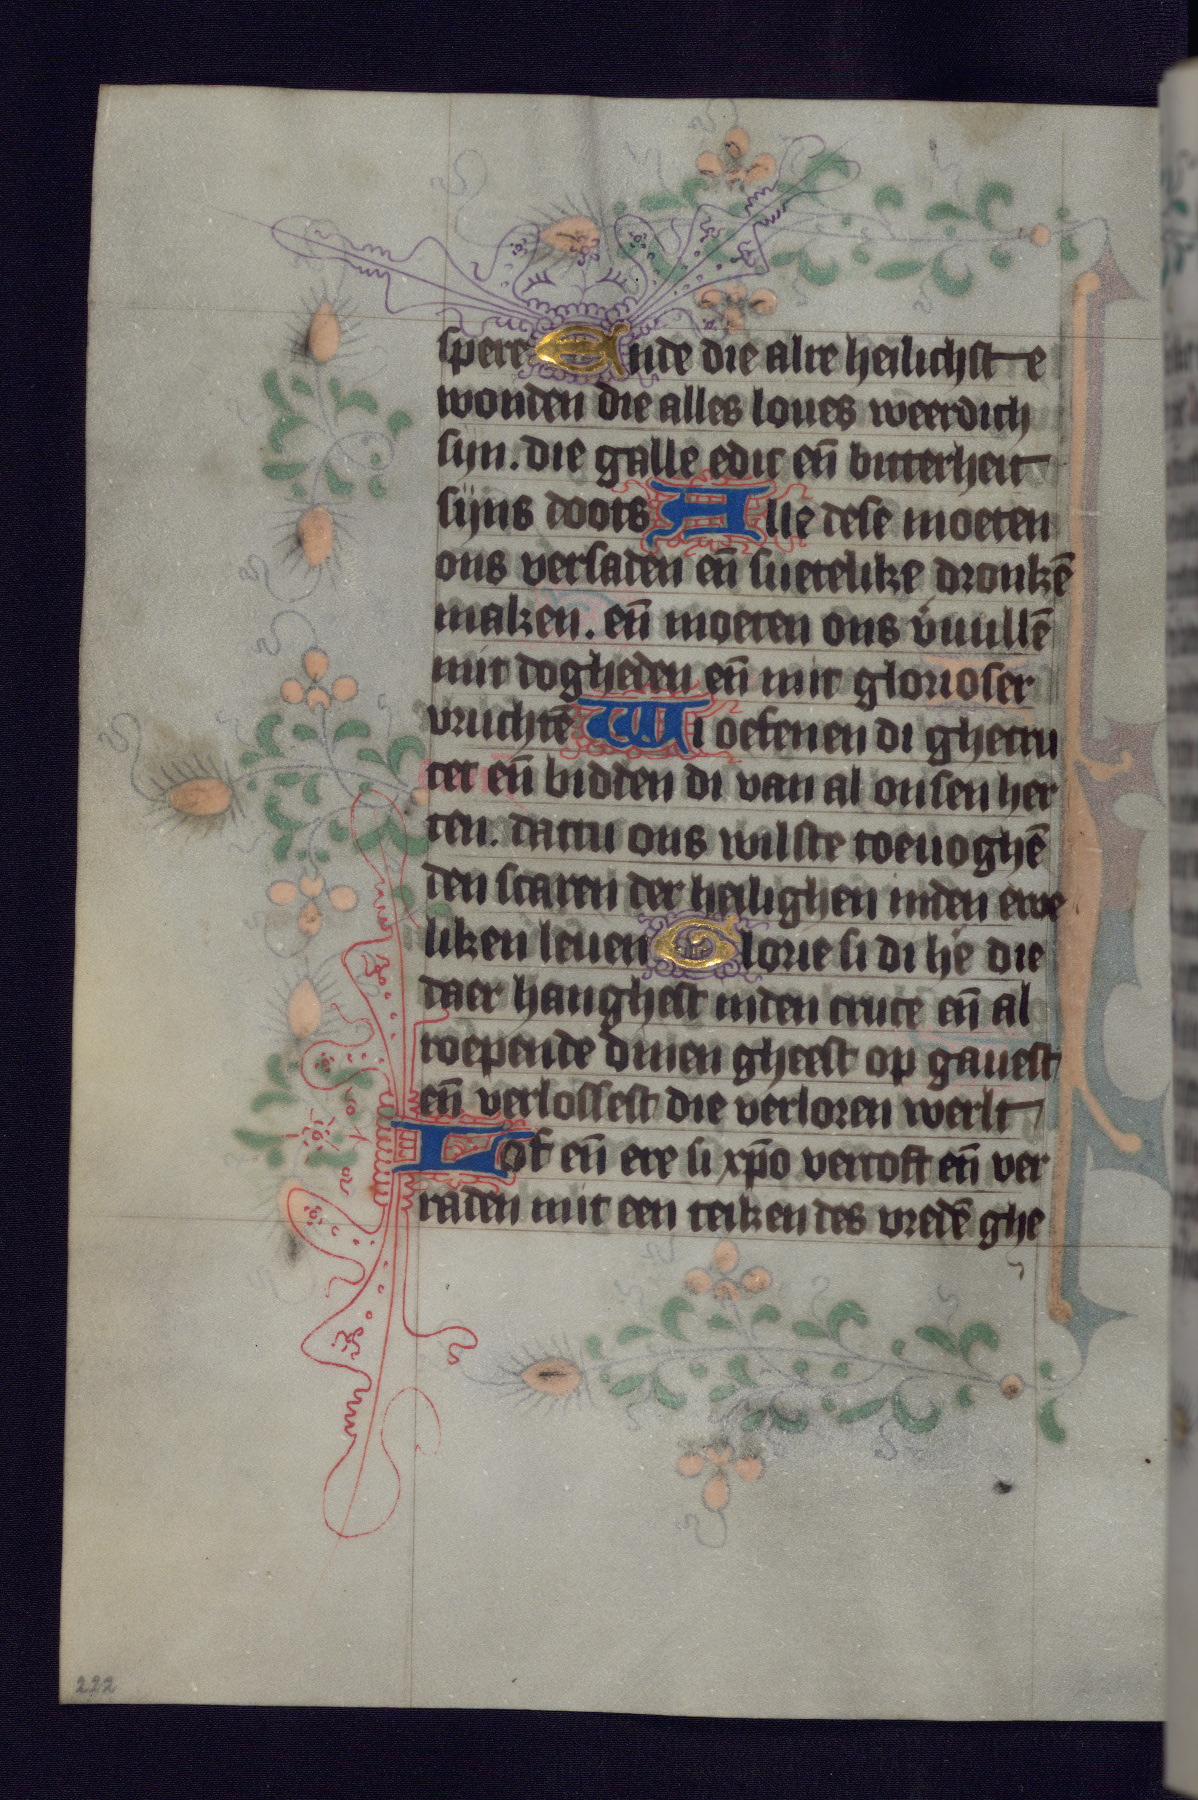 spere Ende die alre heilichste
wonden die alles loues weerdich
sijn. die galle edic en̄ bitterheit
sijns doots Alle dese moeten
ons versaden en̄ suetelike dronkē
maken. en̄ moeten ons vͥuullē
mit dogheden en̄ mit glorioser
vruchtē Wi oefenen di ghetru
rer en̄ bidden di van al onsen her
ten. dattu ons wilste toeuoghē
den scaren der heilighen inden ewe
liken leuen Glorie si di he̅ die
daer hanghest inden cruce en̄ al
roepende dinen gheest op gauest
en̄ verlossest die verloren werlt
Lof en̄ ere si xp̄o vercoft en̄ ver
raden mit een teiken des vredē ghe
222